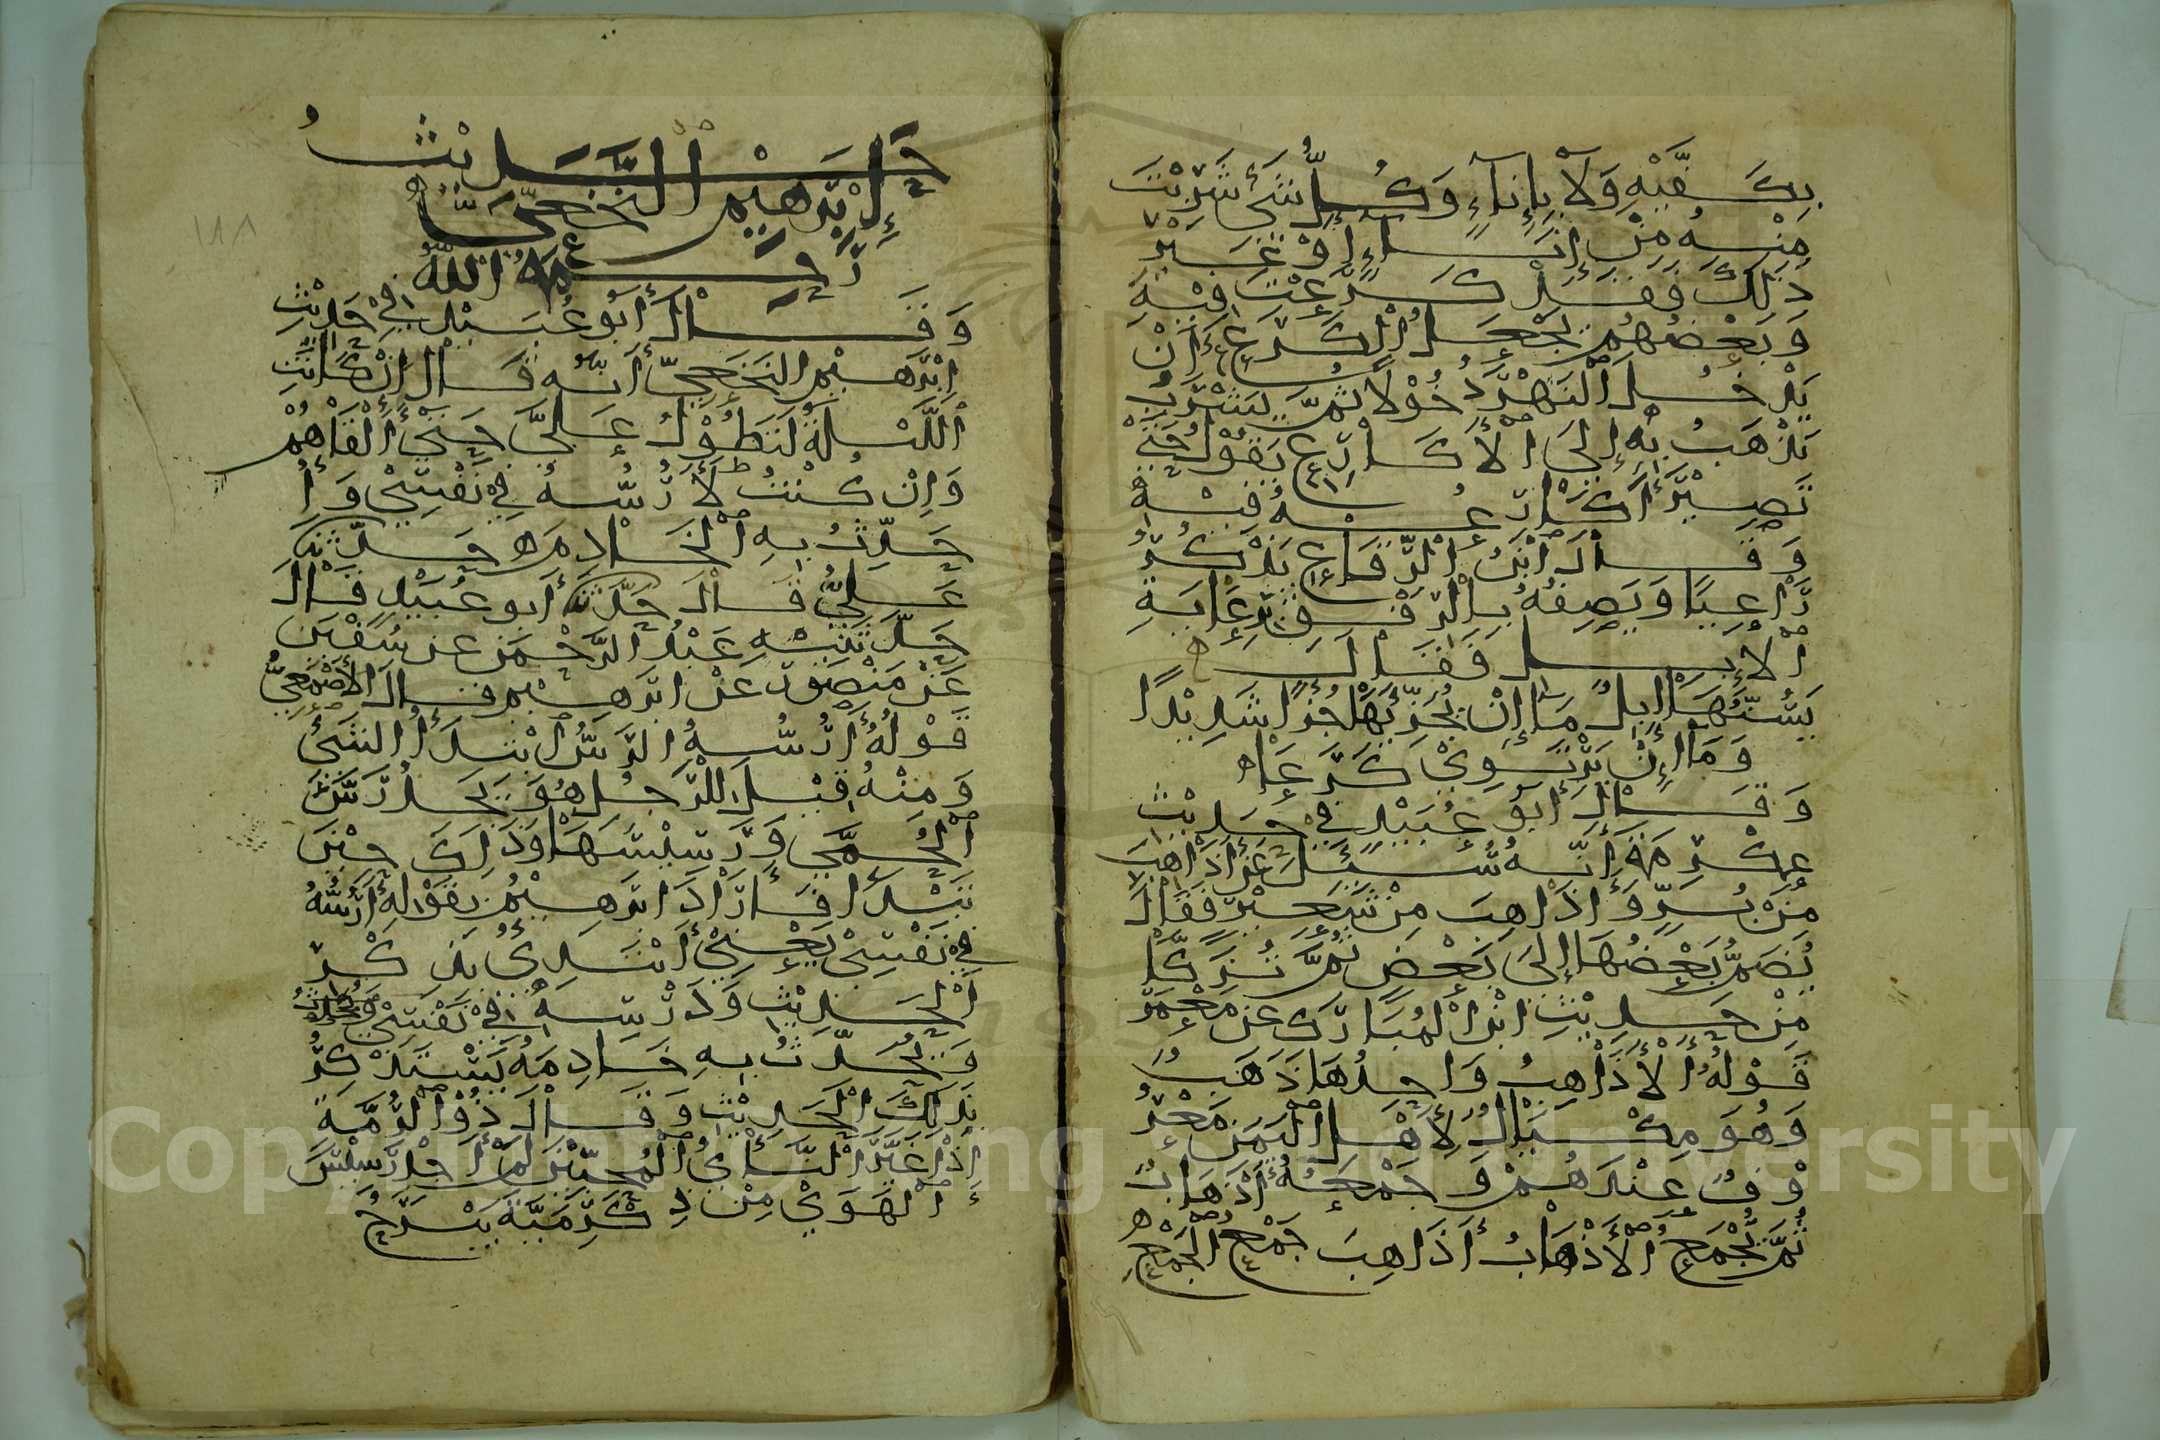 بِكَفَّيْهِ وَلَا بِإِنَآءٍ وَكُلُّ شَئٍ شَرِبْتَ
مِنْهُ مِنْ إِنَاءٍ اوْ غَيْرِ
ذٰلِكَ فَقَدْ كَرَعْتَ فِيْهِ
وَبَعْضُهُمْ يَجْعَلُ الْكَرْعَ أَنْ
يَدْخُلَ النَّهْرَ دُخُوْلًا ثُمَّ يَشْرَبُ
يَذْهَبُ بِهِ إِلَى الْأَكَارِعِ يَقُوْلُ حَتّٰى
تَصِيْرَ أَكَارِعُهُ فِيْهِ
وَقَالَ ابْنُ الرِّقَاعِ يَذْكُرُ
رَاعِيًا وَيَصِفُهُ بِالرِّفْقِ بِرِعَايَةِ
الْإِبِلِ فَقَالَ
يَسُنُّهَا ابِلٌ مَا إِنْ يُجَزِّئُهَا جُزْءًا شَدِيْدًا
وَمَا إِنْ تَرْتَوِيْ كَرَعَا
وَقَالَ أَبُو عُبَيْدٍ فِيْ حَدِيْثِ
عِكْرِمَةَ أَنَّهُ سُئِلَ عَنْ أَذَاهِبَ
مِنْ بُرٍّ وَأَذَاهِبَ مِنْ شَعِيْرٍ فَقَالَ
يُضَمُّ بَعْضُهَا إِلَى بَعْضٍ ثُمَّ تُزَكَّا
مِنْ حَدِيْثِ ابْنِ الْمُبَارَكِ عَنْ مَعْمَرٍ
قَوْلُهُ الْأَذَاهِبُ وَاحِدُهَا ذَهَبٌ
وَهُوَ مِكْيَالٌ لِأَهْلِ الْيَمَنِ مَعْرُ
وْفٌ عِنْدَهُمْ وَجَمْعُهُ أَذْهَابٌ
ثُمَّ تُجْمَعُ الْأَذْهَابُ أَذَاهِبَ جَمْعُ الْجَمْعِ
حَدِيْثُ
إِبْرٰهِيْمَ النَّخَعِيِّ
رَحِمَهُ اللّٰهُ
وَقَالَ أَبُو عُبَيْدٍ فِيْ حَدِيْثِ
ابْرٰهِيْمَ النَّخَعِيِّ أَنَّهُ قَالَ إِنْ كَانَتِ
اللَّيْلَةُ لَتَطُوْلُ عَلَيَّ حَتّٰى أَلْقَاهُمْ
وَإِنْ كُنْتُ لَأَرُسُّهُ فِيْ نَفْسِيْ وَأُ
حَدِّثُ بِهِ الْخَادِمَ حَدَّثَنَا
عَلِيٌّ قَالَ حَدَّثَنَا أَبو عُبَيْدٍ قَالَ
حَدَّثَنِيْهِ عَبْدُ الرَّحْمٰنِ عن سُفْيٰنَ
عَنْ مَنْصُوْرٍ عَنْ ابْرٰهِيْمَ قَالَ الْأَصْمَعِيُّ
قَوْلُهُ أَرُسُّهُ الرَّسُّ ابْتِدَاءُ الشَئِ
وَمِنْهُ قِيْلَ لِلْرَّجُلِ هُوَ يَجِدُ رَسَّ
الْحُمّٰى وَرَسِيْسَهَا وَذٰلِكَ حِيْنَ
تَبْدَأُ فَأَرَادَ ابْرٰهِيْمُ بِقَوْلِهِ أَرُسُّهُ
فِيْ نَفْسِيْ يَعْنِيْ أَبْتَدِئُ بِذِكْرِ
الْحَدِيْثِ وَدَرْسِهِ فِيْ نَفْسِيْ وَيُحَدِّثُ
وَيُحَدِّثُ بِهِ خَادِمَهُ يَسْتَذْكِرُ
بِذٰلِكَ الْحَدِيْثَ وَقَالَ ذُو الرُّمَّةِ
إِذَا غَيَّرَ النَّأْيُ الْمُحِبِّيْنَ لَمْ أَجِدْ رَسِيْسَ
الْهَوٰى مِنْ ذِكْرِ مَيَّةَ يَبْرَحُ
Copyright © King Saud University